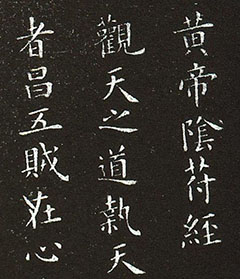 黄帝陰苻經
觀天之道執天
者昌五賊在心